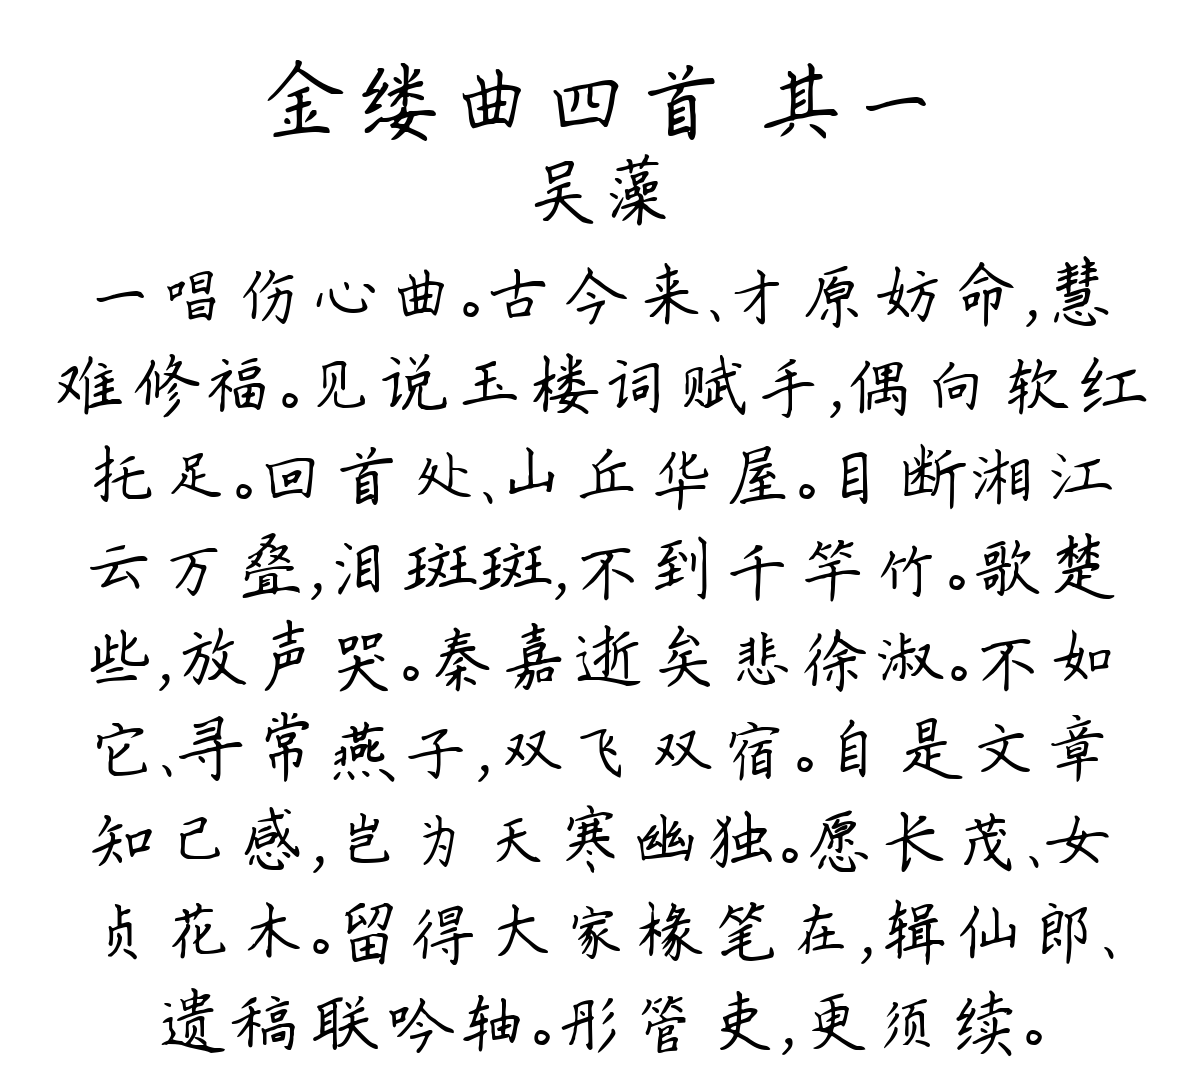 金缕曲四首 其一
吴藻
一唱伤心曲。古今来、才原妨命,慧
难修福。见说玉楼词赋手,偶向软红
托足。回首处、山丘华屋。目断湘江
云万叠,泪斑斑,不到千竿竹。歌楚
些,放声哭。秦嘉逝矣悲徐淑。不如
它、寻常燕子,双飞双宿。自是文章
知己感,岂为天寒幽独。愿长茂、女
贞花木。留得大家椽笔在,辑仙郎、
遗稿联吟轴。彤管吏,更须续。